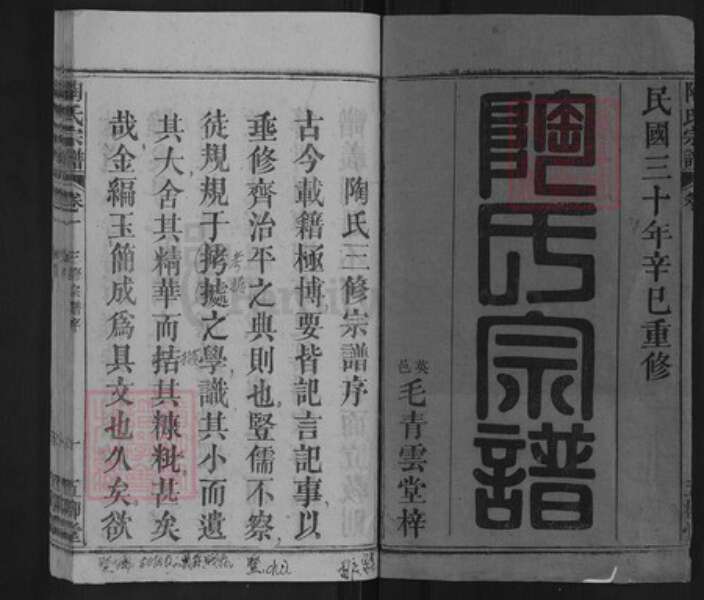 民國三十年辛巳重修
陶氏宗譜
英邑毛青雲堂梓
陶氏三修宗譜序
古今載籍極博要皆記言記事以
垂修齊治平之典則也竪儒不察
徒規規于拷據之學識其小而遺
其大舍其精華而拮其糠粃甚矣
哉金編玉簡成爲具文也久矣欲
陶氏宗譜 卷一 三修宗譜序 一 五柳堂